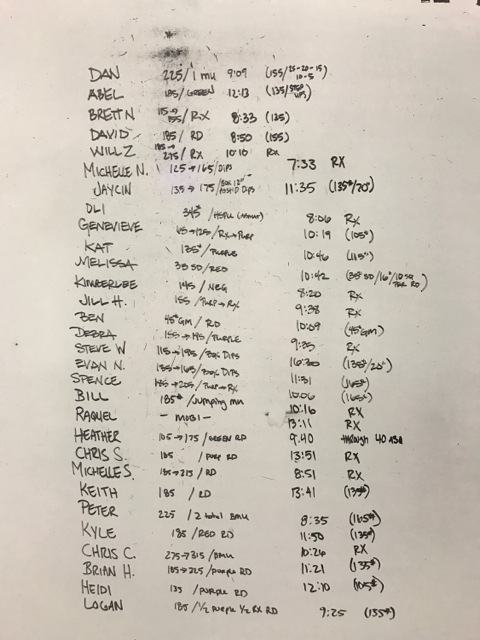 DAN 225/1 MU 9:09 (155/25-20-15 10-5
ABEL 185/GREEN 12:13 (135/STEP UPS
BRETT N 155/RX 8:33 (125)
DAVID 185/RD 8:50 (155)
WILL Z 275/RX 10:10 RX
MICHELLE N. 125→165/DIPS 7:33 RX
JAYCIN 135→175/BOX 12" ASST'D DIPS 11:35 (135#/20")
OLI 345# /HSPU 8:06 RX
GENEVIEVE →125/RX→PURP 10:19 (105#)
KAT 135#/PURPLE 10:46 (115#)
MELISSA 35 50/RED 10:42 (35 50/16"/10 RD)
KIMBERLEE 145/NEG 8:20 RX
JILL H. 155/PURP→RX 9:38 RX
BEN 45#GM/RD 10:09 (45#GM)
DEBRA /PURPLE 9:35 RX
STEVE W /BOX DIPS 16:30 (135#/20")
EVAN N. 135→165/BOX DIPS 11:31 (165#)
SPENCE →205/PURP→RX 10:06 (165#)
BILL 185#/Jumping MU 10:16 RX
RAQUEL - MOBI - 13:11 RX
HEATHER 105→175/GREEN RD 9:40 THROUGH 40
CHRIS S. 185 /PURP RD 13:51 RX
MICHELLE S. 185→215/RD 8:51 RX
KEITH 185 /RD 13:41 (135#)
PETER 225 /2 total BMU 8:35 (165#)
KYLE 185/RED RD 11:50 (135#)
CHRIS C. 275→315/BMU 10:26 RX
BRIAN H. 185→225/purple RD 11:21 (135#)
HEIDI 135 /PURPLE RD 12:10 (105#)
LOGAN 185/1/2 purple 1/2 RX RD 9:25 (135#)